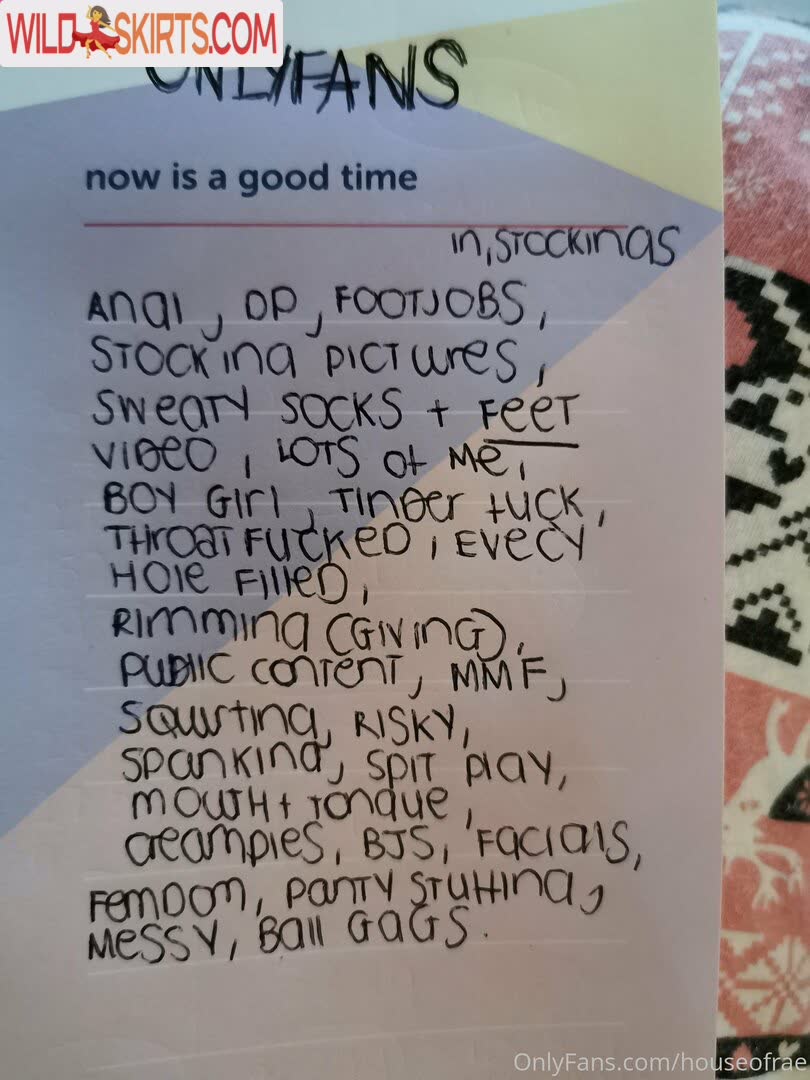 WILDSKIRTS.COM
ONLYFANS
now is a good time
in, STOCKINGS
Anal, DP, FOOTJOBS,
STOCKing PICTures,
SWeaTY SOCKS + FeeT
VIDeO, LOTS Of Me,
BOY GIrl, TInDer fuCK,
THrOaT FUCKeD, EVerY
HOle FIlleD,
RImming (GIVInG),
PUBlIC COnTenT, MMF,
SQuirTing, RISKY,
SPanKing, SPIT Play,
mOuTH + TOngue,
Creampies, BJS, Facials,
FemDOm, PanTY STuffing,
Messy, Ball GaGS.
OnlyFans.com/houseofrae